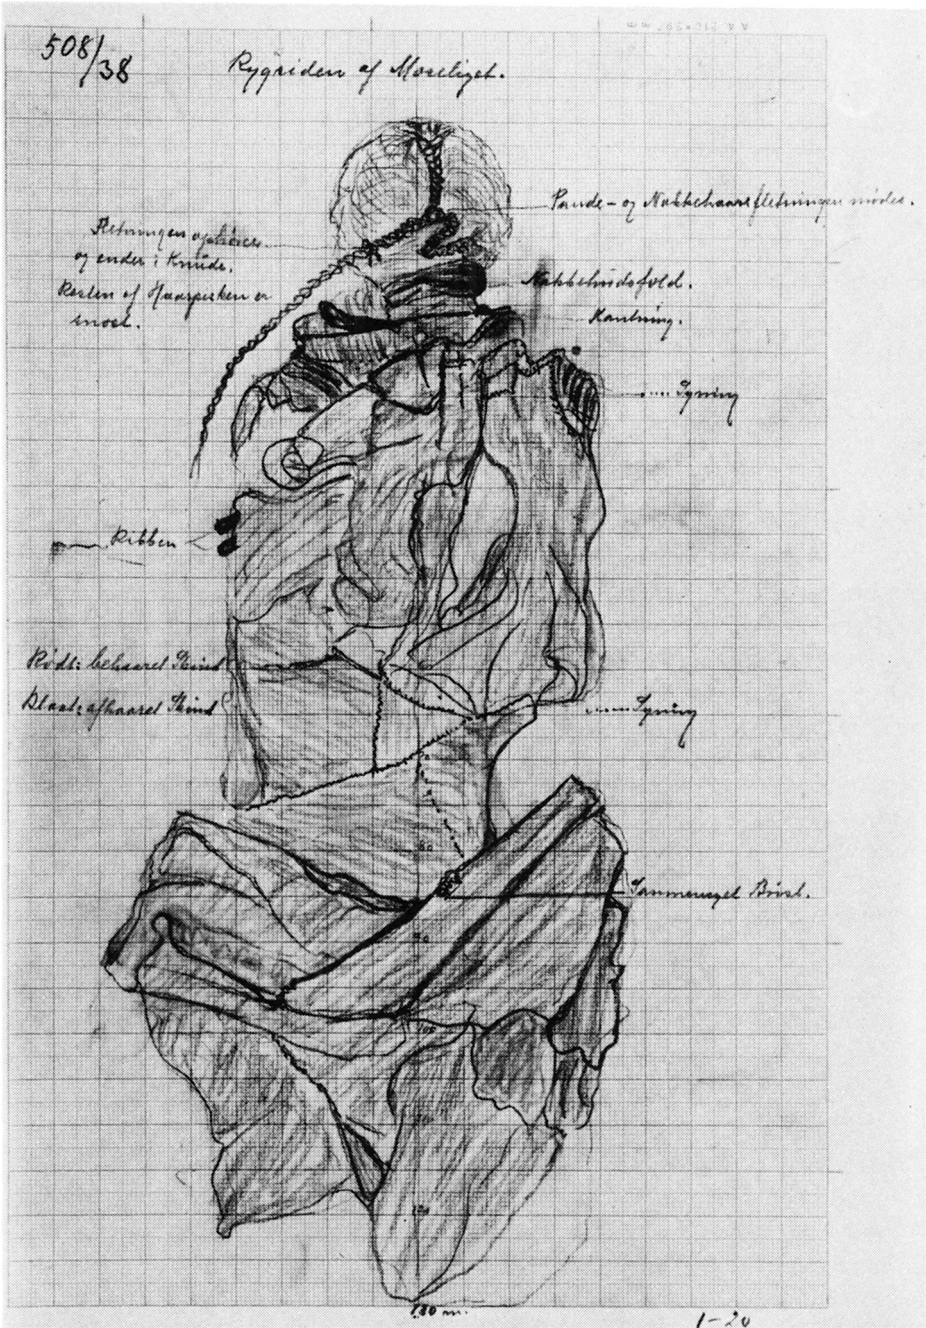 508/38
Rygsiden af Moseliget.
Pande- og Nakkehaarsfletningen mødes.
Fletningen ophører
og ender i Knude.
Resten af Haarpisken er
snoet.
Nakkehudsfold.
Kantning.
Syning
Ribben
Rødt: behaaret Skind
Blaat: afhaaret Skind
Syning
Sammensyet Brist.
80
90
100
120
130 m.
1-20